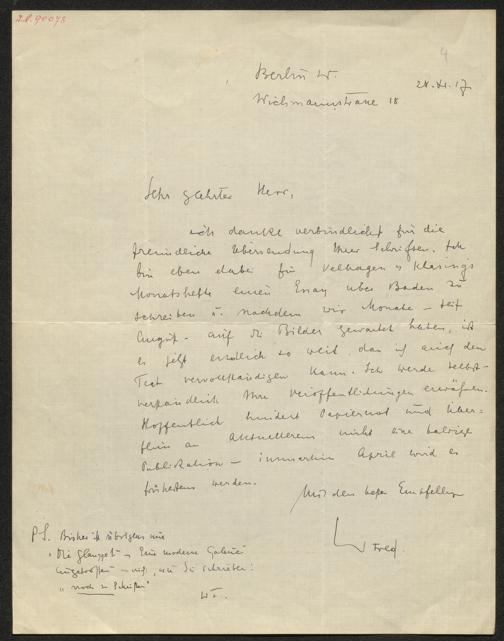 Berlin W.
Wichmannstrasse 18
Sehr geehrter Herr,
ich danke verbindlichst für die
freundliche Übersendung Ihrer Schriften. Ich
bin eben dabei für Velhagen & Klasings
Monatshefte einen Essay über Baden zu
schreiben u. nachdem wir Monate – seit
August – auf die Bilder gewartet haben, ist
es jetzt endlich so weit, dass ich auch den
Text vervollständigen kann. Ich werde selbst-
verständlich Ihre Veröffentlichungen erwähnen.
Hoffentlich hindert Papiernot und Über=
fluss an Aktuellerem nicht eine baldige
Publikation – immerhin April wird es
frühestens werden.
Mit den besten Empfehlungen
W Fred.
PS. Bisher ist übrigens nur
"Die Glanzzeit" u "Eine moderne Galerie"
eingetroffen – nicht, wie Sie schrieben:
"noch 2 Schriften"
WF.